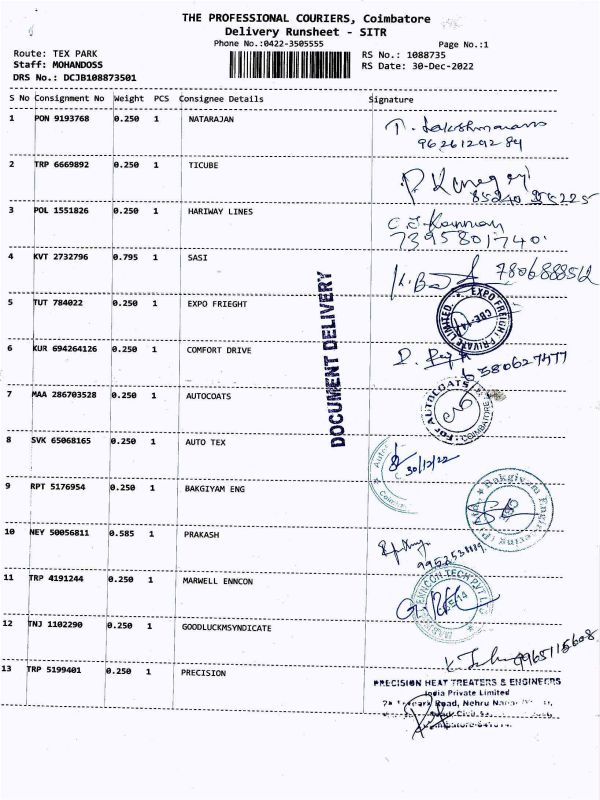 THE PROFESSIONAL COURIERS, Coimbatore
Delivery Runsheet - SITR
Phone No.:0422-3505555
Page No.:1
Route: TEX PARK
RS No.: 1088735
Staff: MOHANDOSS
RS Date: 30-Dec-2022
DRS No.: DCJB108873501
S No Consignment No Weight PCS Consignee Details Signature
1 PON 9193768 0.250 1 NATARAJAN
9626129284
2 TRP 6669892 0.250 1 TICUBE
3 POL 1551826 0.250 1 HARIWAY LINES
7395801740
4 KVT 2732796 0.795 1 SASI
5 TUT 784022 0.250 1 EXPO FRIEGHT
EXPO FREIGHT PRIVATE LIMITED
CBE-14
6 KUR 694264126 0.250 1 COMFORT DRIVE
DOCUMENT DELIVERY
7 MAA 286703528 0.250 1 AUTOCOATS
For AUTOCOATS
COIMBATORE
8 SVK 65068165 0.250 1 AUTO TEX
30/12/22
9 RPT 5176954 0.250 1 BAKGIYAM ENG
Bakgiyam Engineering
10 NEY 50056811 0.585 1 PRAKASH
11 TRP 4191244 0.250 1 MARWELL ENNCON
12 TNJ 1102290 0.250 1 GOODLUCKMSYNDICATE
9965115608
13 TRP 5199401 0.250 1 PRECISION
PRECISION HEAT TREATERS & ENGINEERS
India Private Limited
Road, Nehru